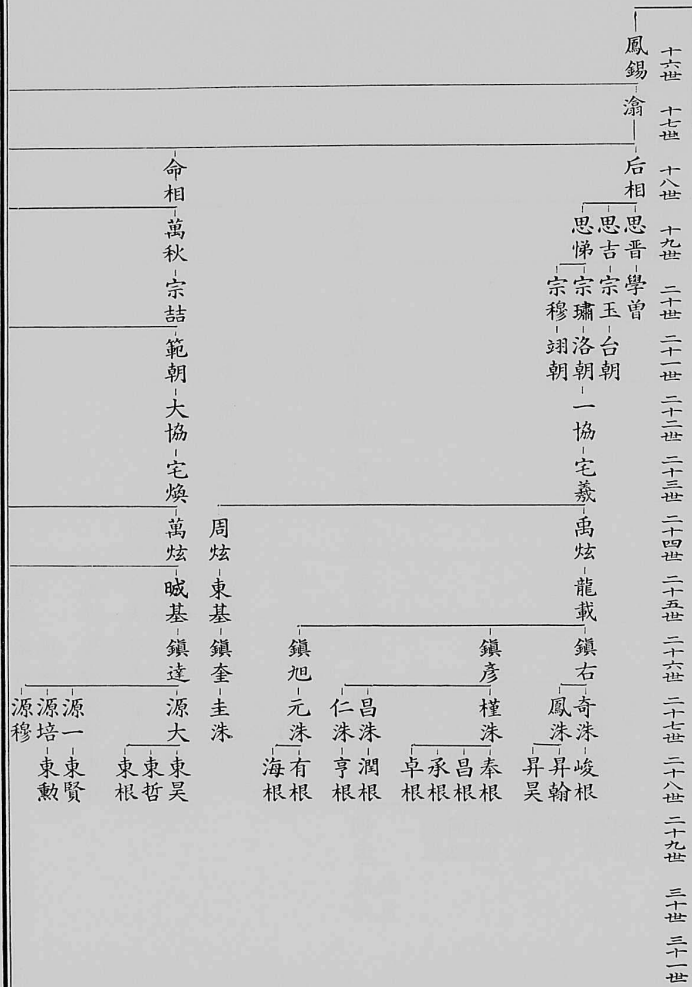 十六世 十七世 十八世 十九世 二十世 二十一世 二十二世 二十三世 二十四世 二十五世 二十六世 二十七世 二十八世 二十九世 三十世 三十一世
鳳錫 滃 后相 思晋 學曽
思吉 宗玉 台朝
思悌 宗璛 洛朝 一協 宅羲 禹炫 龍載 鎭右 奇洙 峻根
宗穆 翊朝
鳳洙 昇翰
昇昊
鎭彦 槿洙 奉根
昌根
承根
卓根
昌洙 潤根
仁洙 亨根
鎭旭 元洙 有根
海根
周炫 東基 鎭奎 圭洙
命相 萬秋 宗喆 範朝 大協 宅煥 萬炫 晠基 鎭達 源大 東昊
東哲
東根
源一 東賢
源培 東勲
源穆